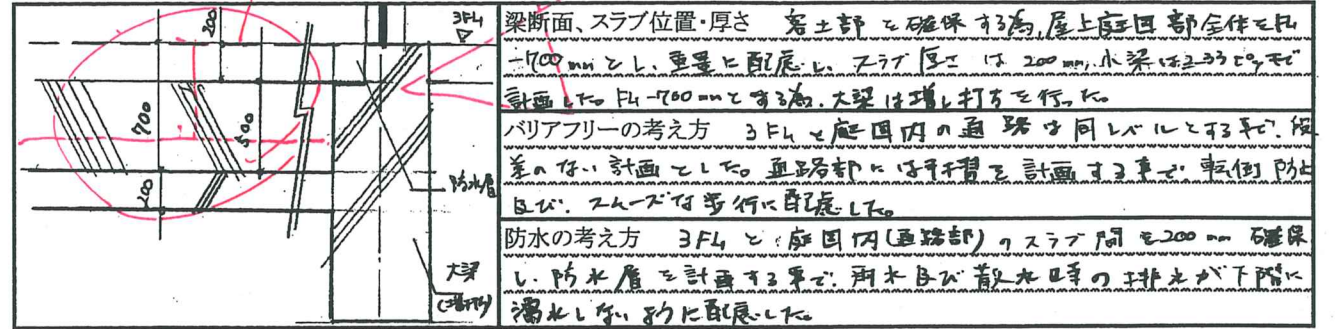 3FL
▽
200
700
500
200
防水層
大梁
(増打ち)
梁断面、スラブ位置・厚さ 客土部を確保する為、屋上庭園部全体をFL
-700mmとし、重量に配慮し、スラブ厚さは200mm、小梁は
計画した。FL-700mmとする為、大梁は増し打ちを行った。
バリアフリーの考え方 3FLと庭園内の通路は同レベルとする事で、段
差のない計画とした。通路部には手摺を計画する事で、転倒防止
及び、スムーズな歩行に配慮した。
防水の考え方 3FLと庭園内(通路部)のスラブ間を200mm確保
し、防水層を計画する事で、雨水及び散水時の排水が下階に
漏水しないように配慮した。